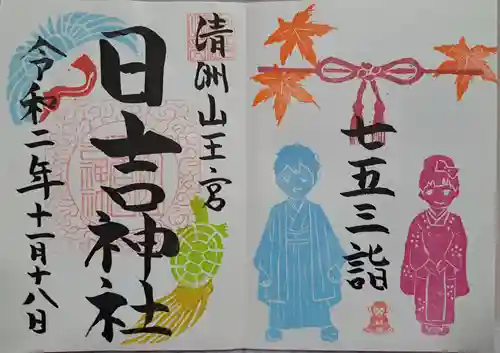 七五三詣
清洲山王宮
日吉神社
令和二年十一月十八日